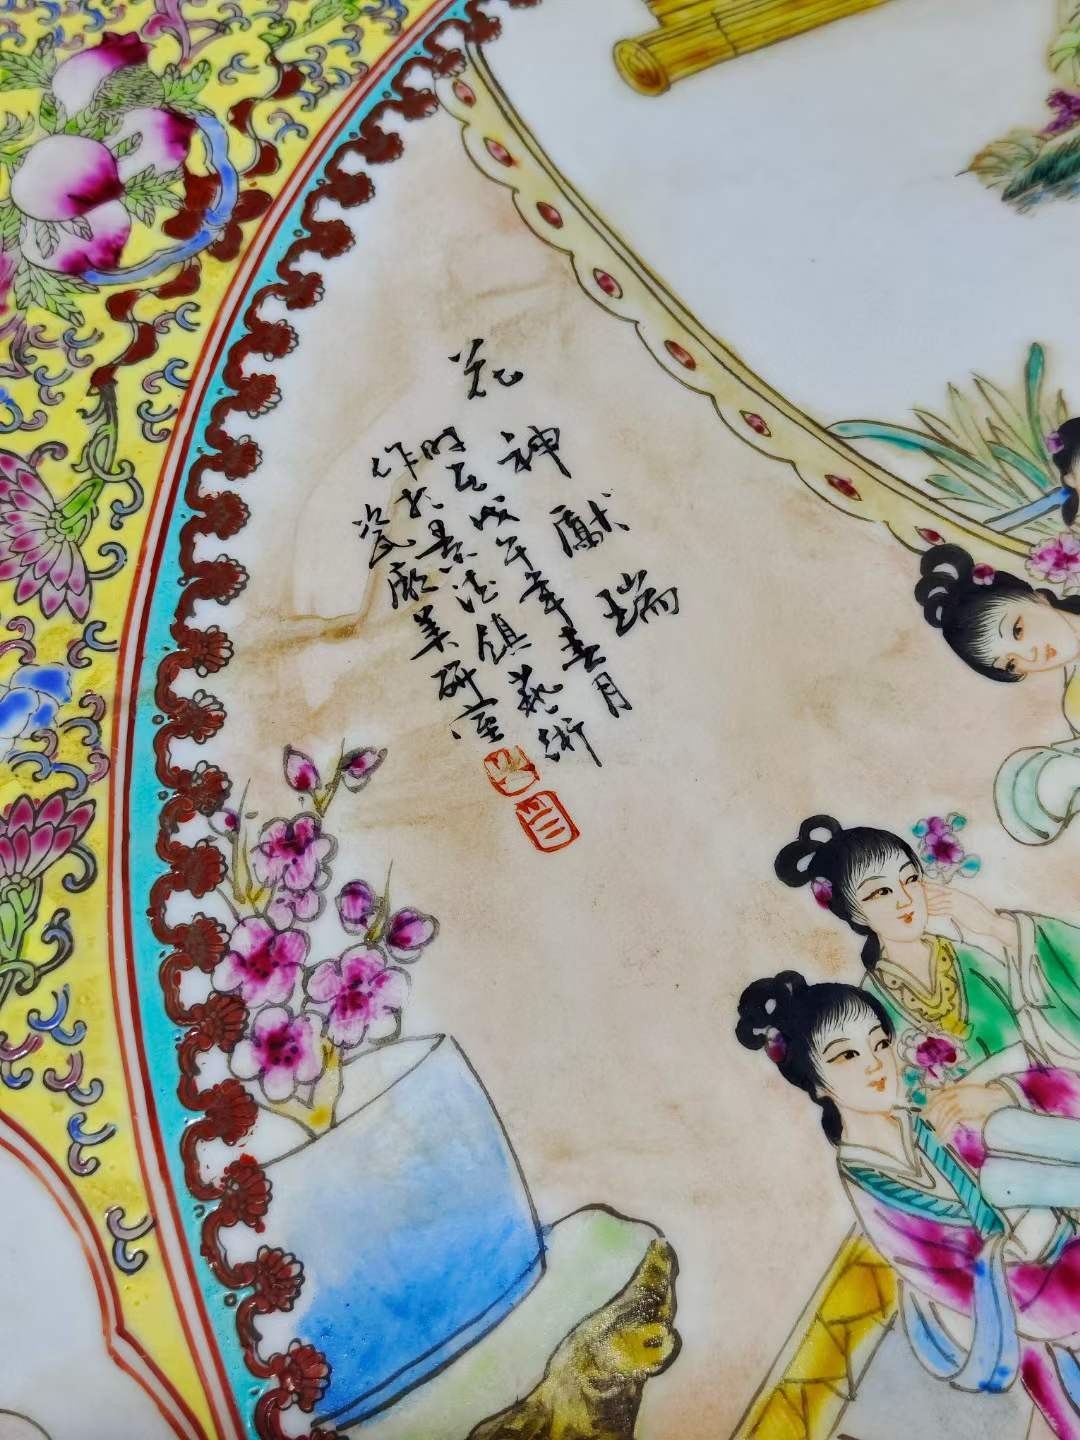 花神獻瑞
時在戊午年春月
作於景德鎮藝術
瓷廠美研室